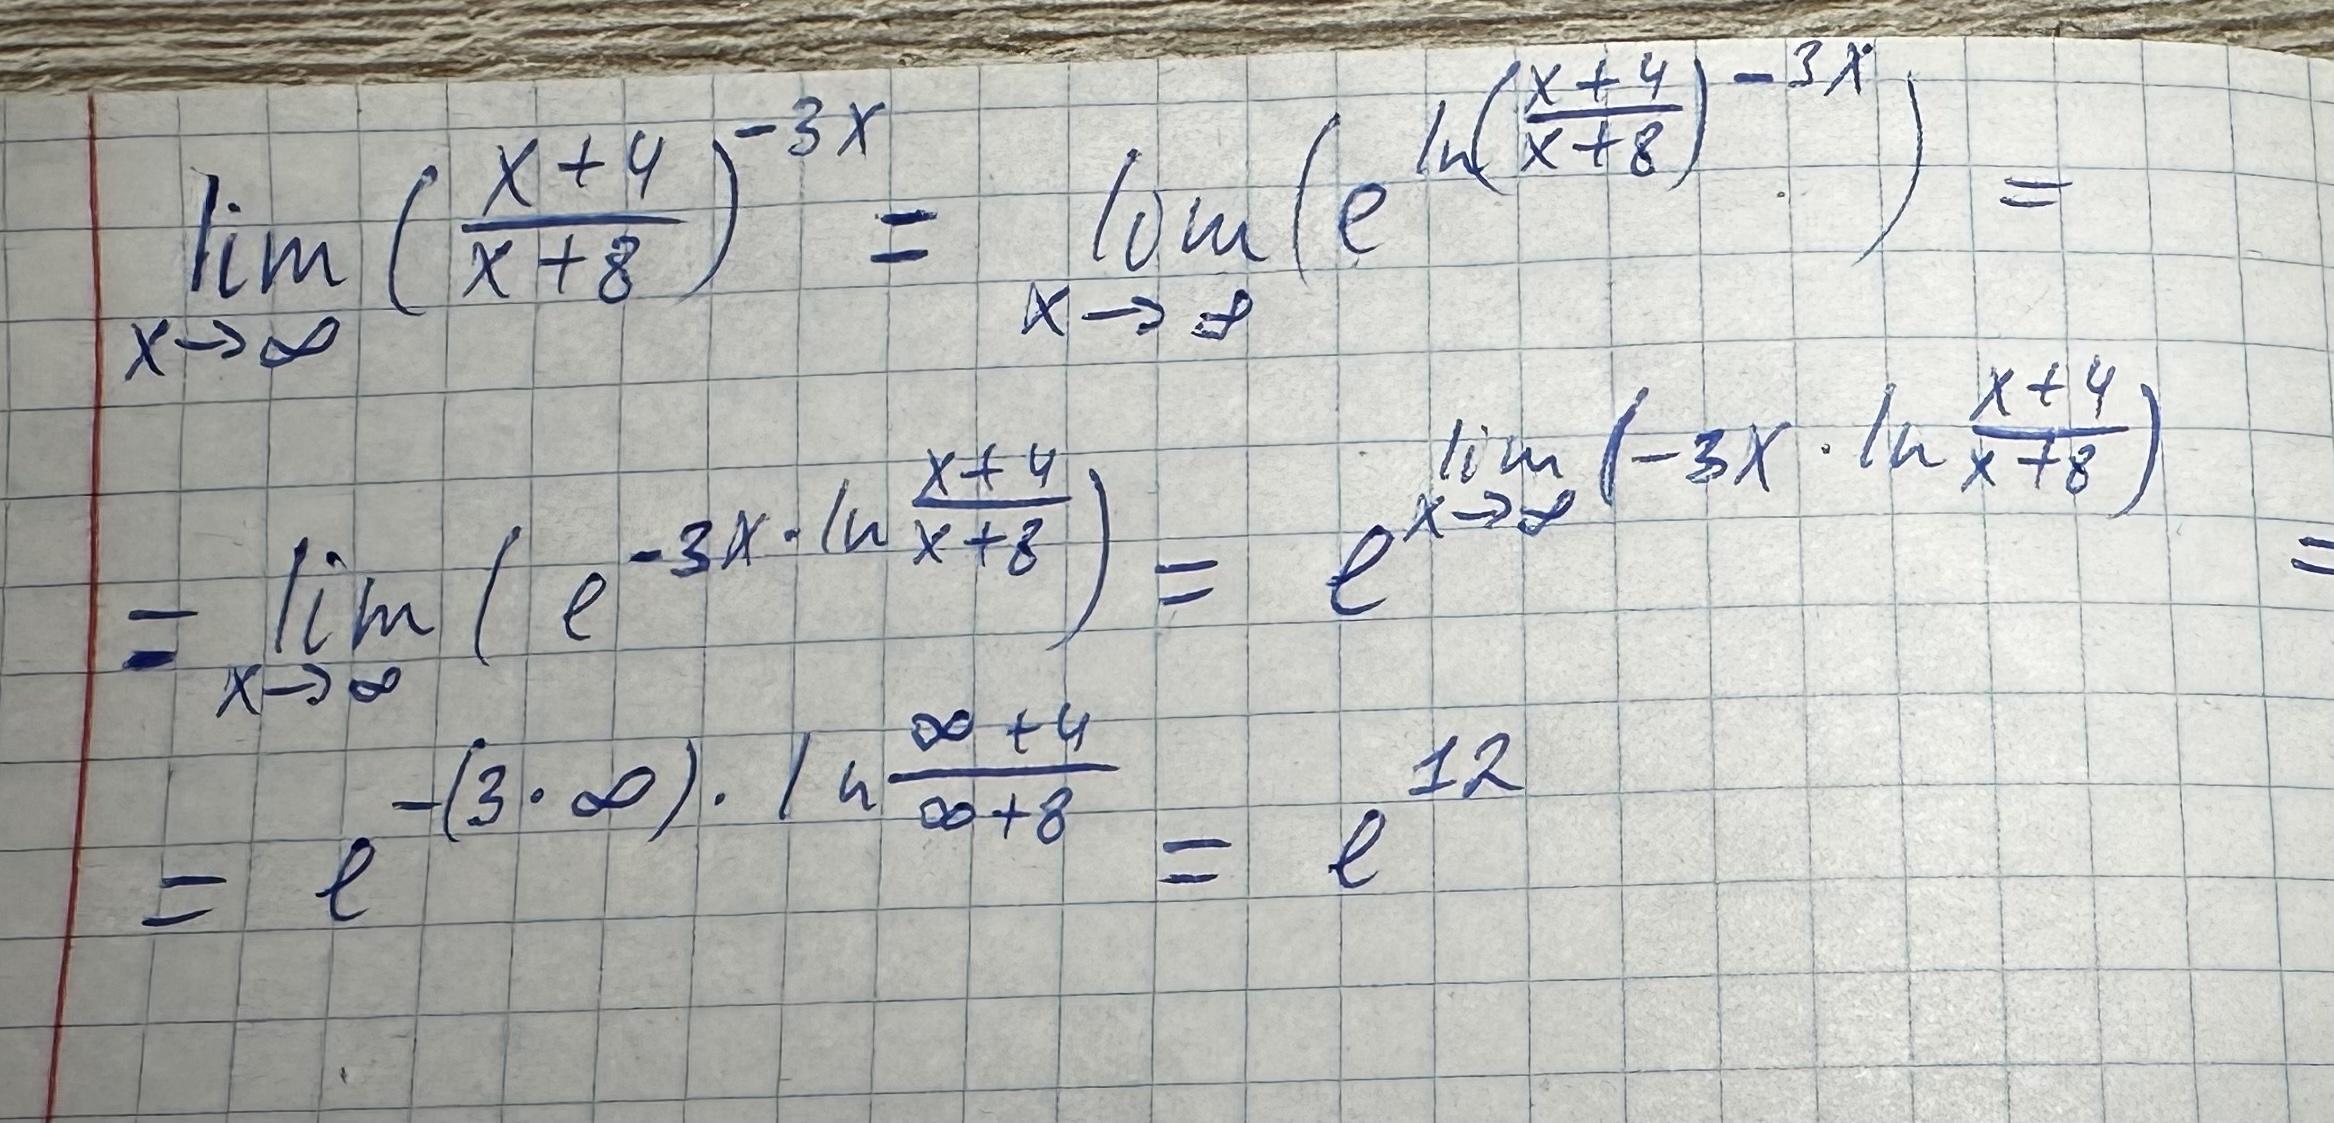 lim x→∞ ((x+4)/(x+8))^(-3x) = lim x→∞ (e^(ln((x+4)/(x+8))^(-3x))) =
= lim x→∞ (e^(-3x·ln (x+4)/(x+8))) = e^(lim x→∞ (-3x·ln (x+4)/(x+8))) =
= e^(-(3·∞)·ln (∞+4)/(∞+8)) = e^12